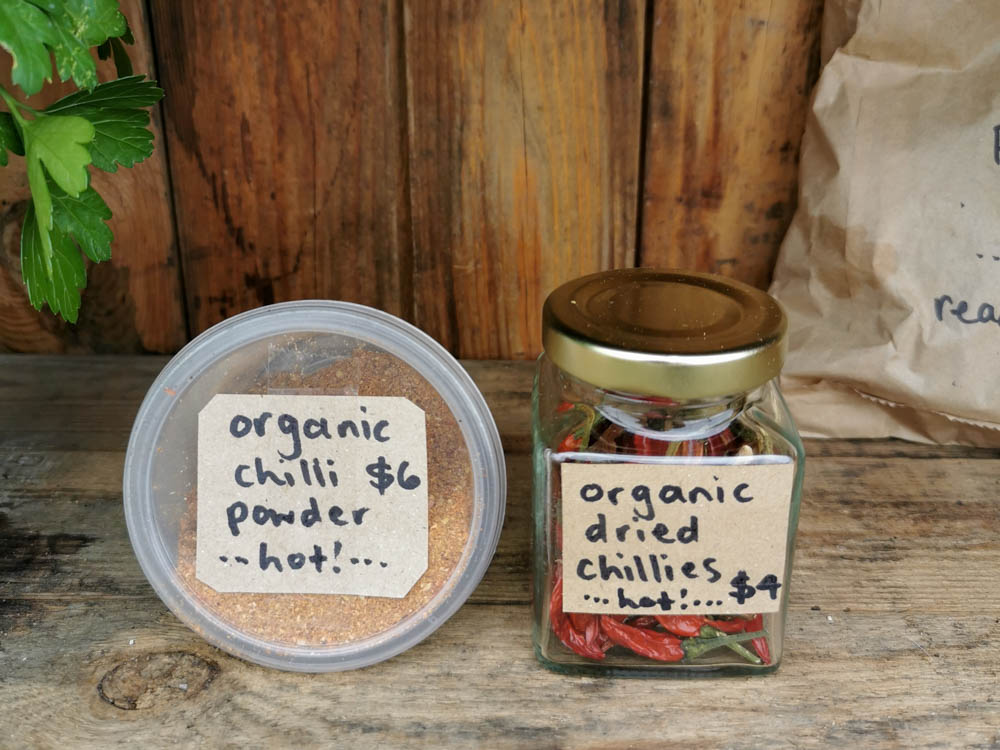 organic
chilli $6
powder
..hot!...
organic
dried
chillies
...hot!... $4